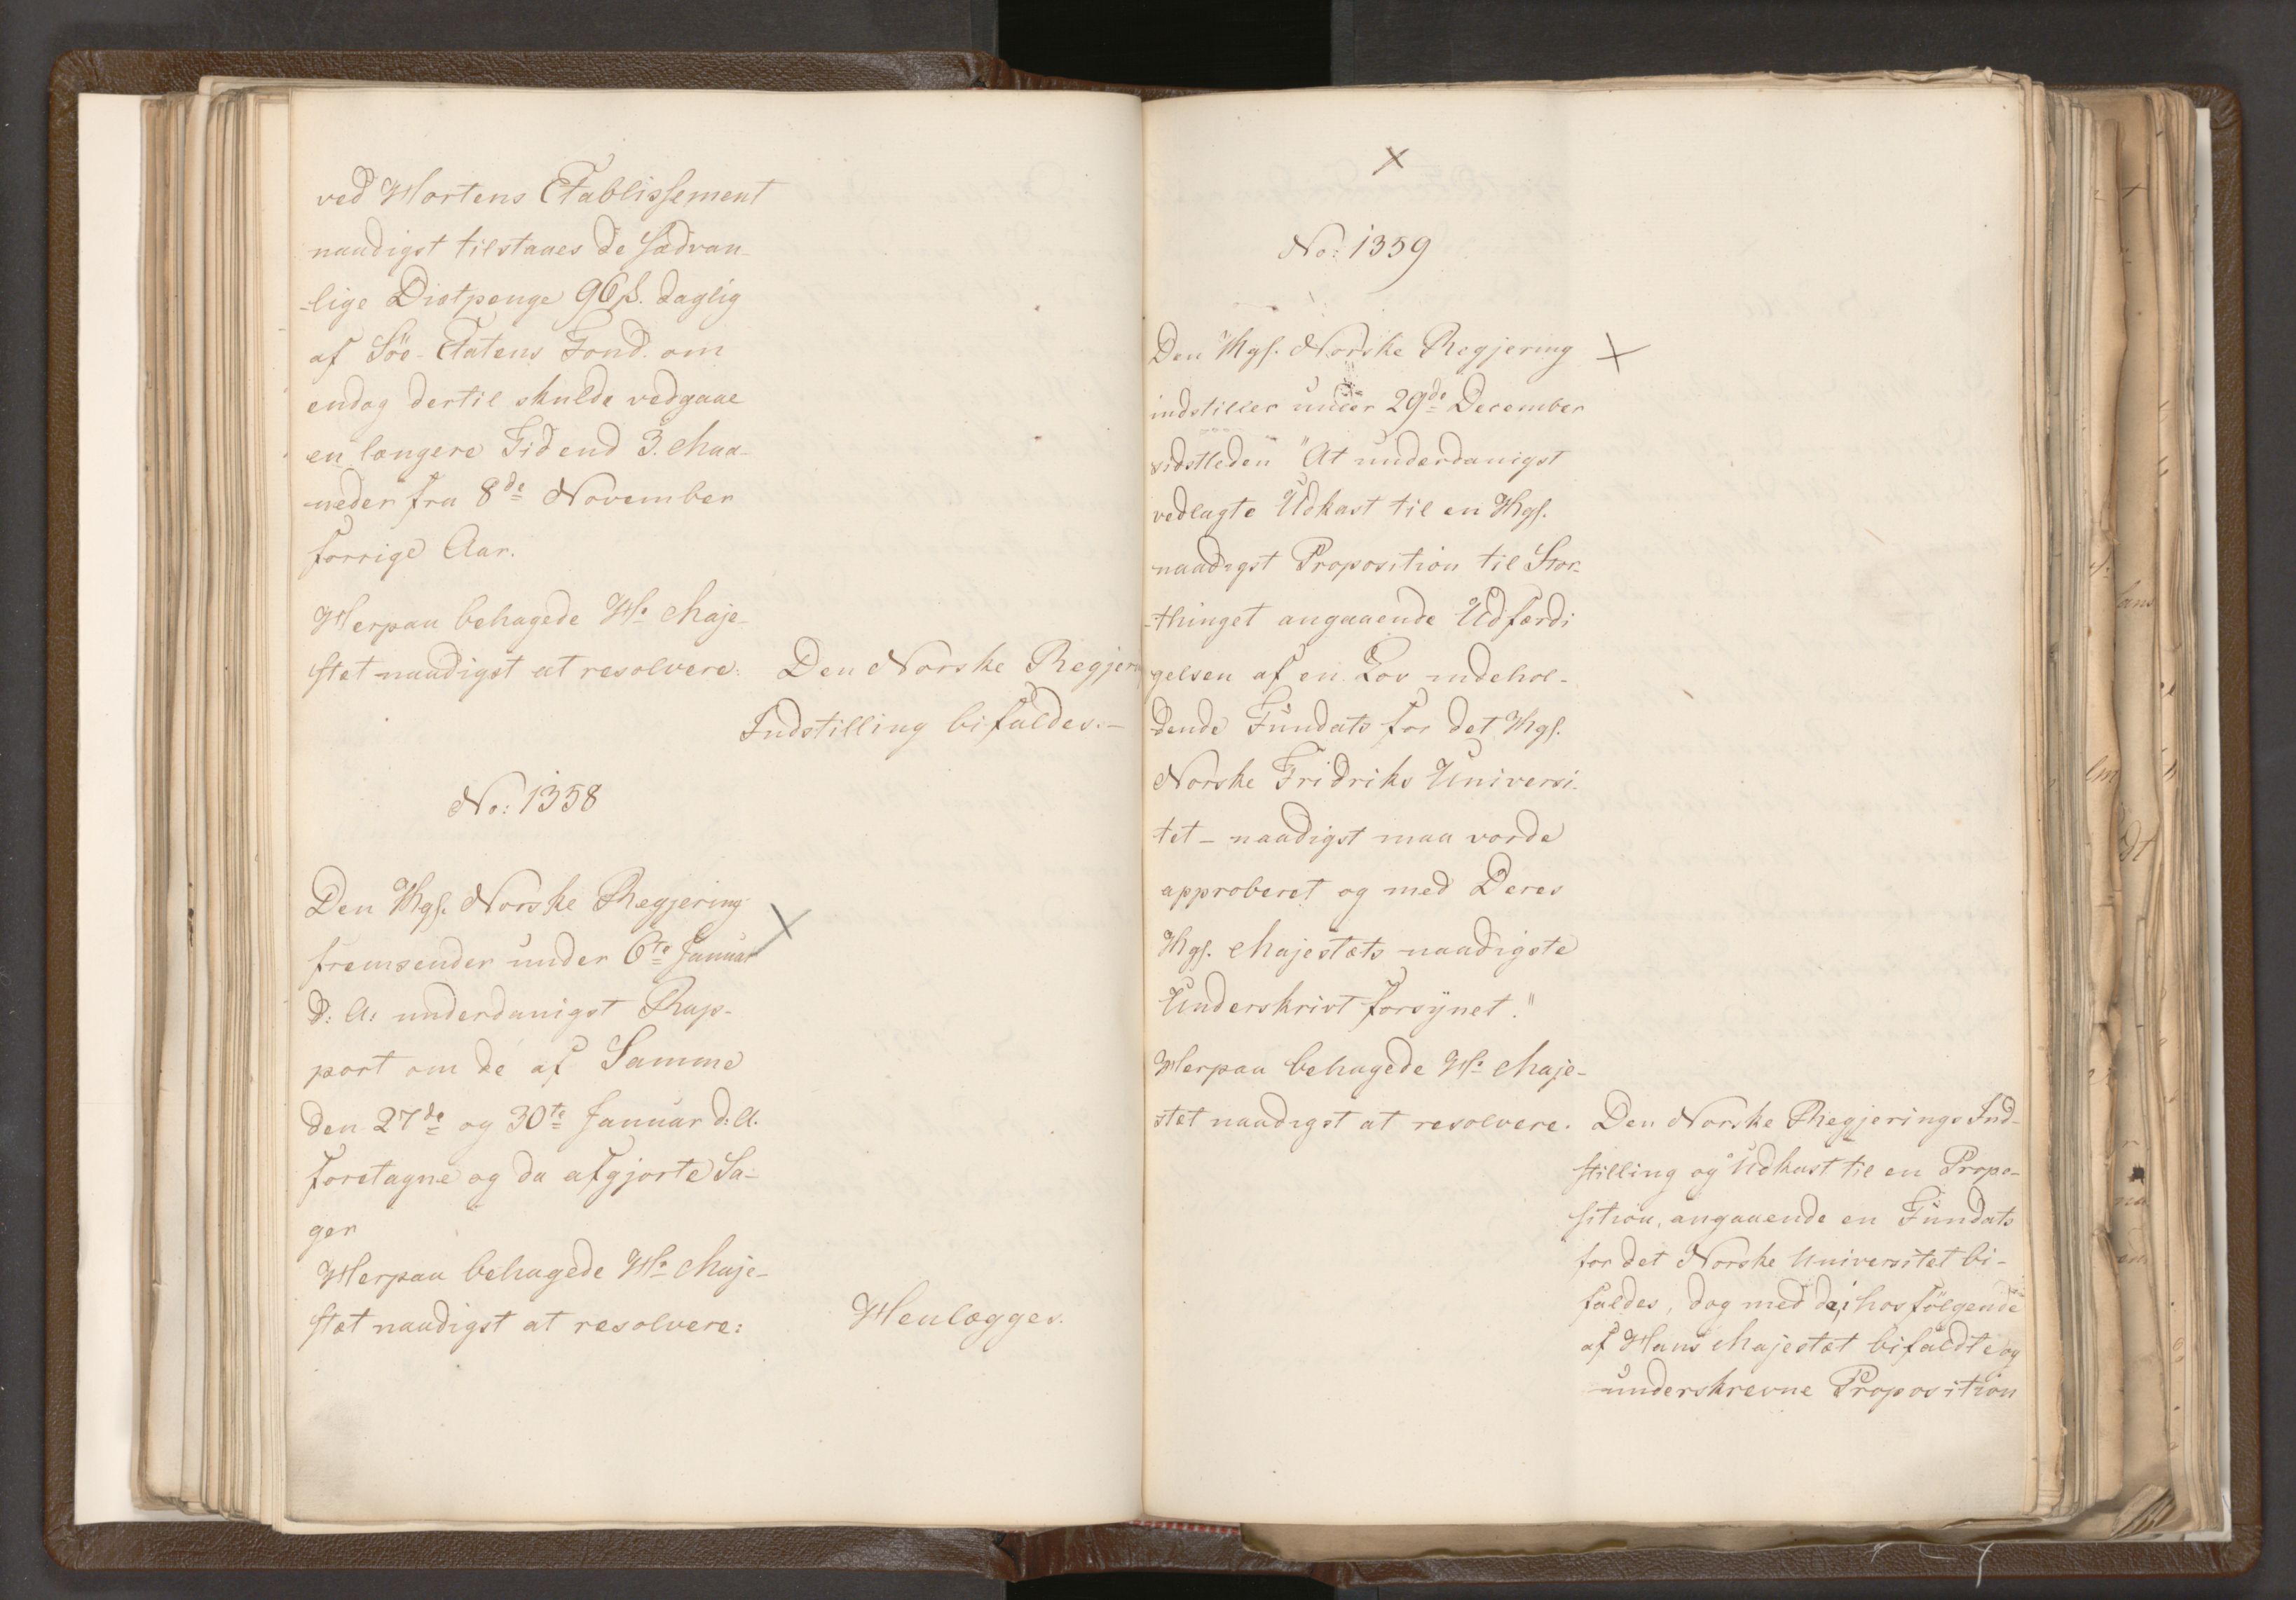 ved Hortens Etablissement
naadigst tilstaaes de sædvan-
-lige Diætpenge 96ß. daglig
af Söe-Etatens Fond. om
endog dertil skulde vedgaae
en længere Tid end 3. Maa-
neder fra 8de November
forrige Aar.
Herpaa behagede Hs. Maje-
stæt naadigst at resolvere:
Den Norske Regjer
Indstilling bifaldes.-
No: 1358
Den Kgs. Norske Regjering
fremsender under 6te Januar
d: A: underdanigst Rap-
port om de af Samme
den 27de og 30te Januar d: A.
foretagne og da afgjorte Sa-
ger
Herpaa behagede Hs. Maje-
stæt naadigst at resolvere:
Henlægges.
No: 1359
Den Kgs. Norske Regjering
indstiller under 29de December
sidstleden "At underdanigst
vedlagte Udkast til en Kgs.
naadigst Proposition til Stor-
-thinget angaaende Udfærdi
gelsen af en Lov indehol-
dende Fundats for det Kgs.
Norske Fridriks Universi-
tet - naadigst maa vorde
approberet og med Deres
Kgs. Majestæts naadigste
Underskrivt forsÿnet."
Herpaa behagede Hs. Maje-
stæt naadigst at resolvere.
Den Norske Regjerings Ind-
stilling og Udkast til en Propo-
sition, angaaende en Fundats
for det Norske Universitet bi-
faldes, dog med de, i hosfölgende
af Hans Majestæt bifaldte og
underskrevne Proposition